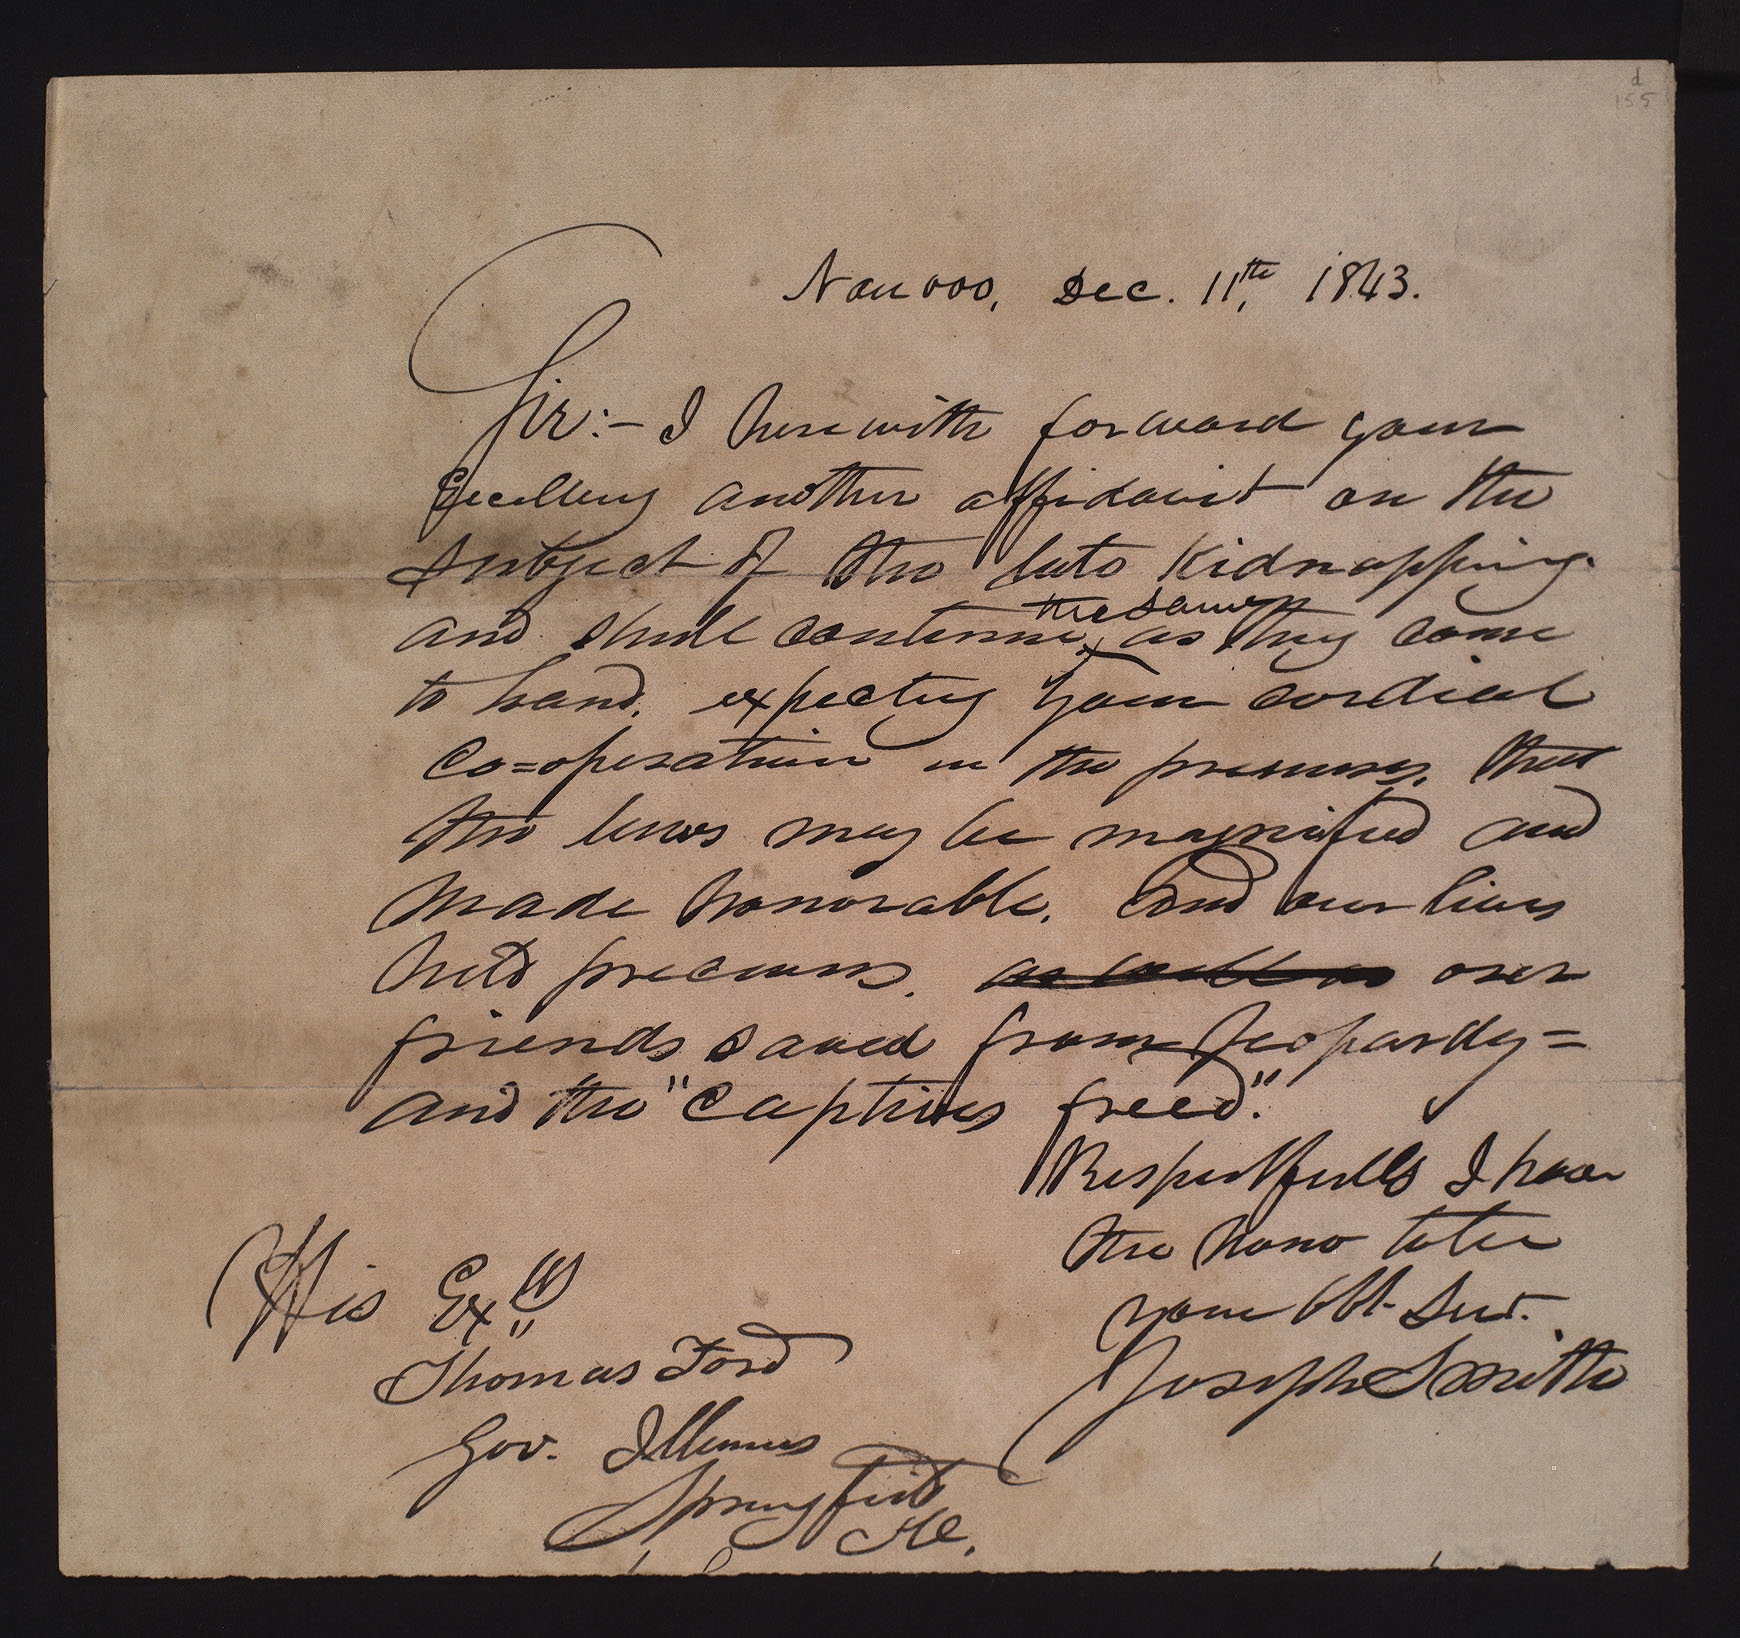 d
155
Nauvoo, Dec. 11th, 1843.
Sir:- I herewith forward your
Excellency another affidavit on the
subject of the late Kidnapping.
and shall continue, the same, as they come
to hand, expecting your cordial
Co=operation in the premises, that
the laws may be magnified and
made honorable, and our lives
held precious, as well as our
friends saved from Jeopardy=
and the "Captives freed."
Respectfully I have
the hono to be
your Obt. Sert.
Joseph Smith
His Excy
Thomas Ford
Gov. Illinois
Springfield
Ill.